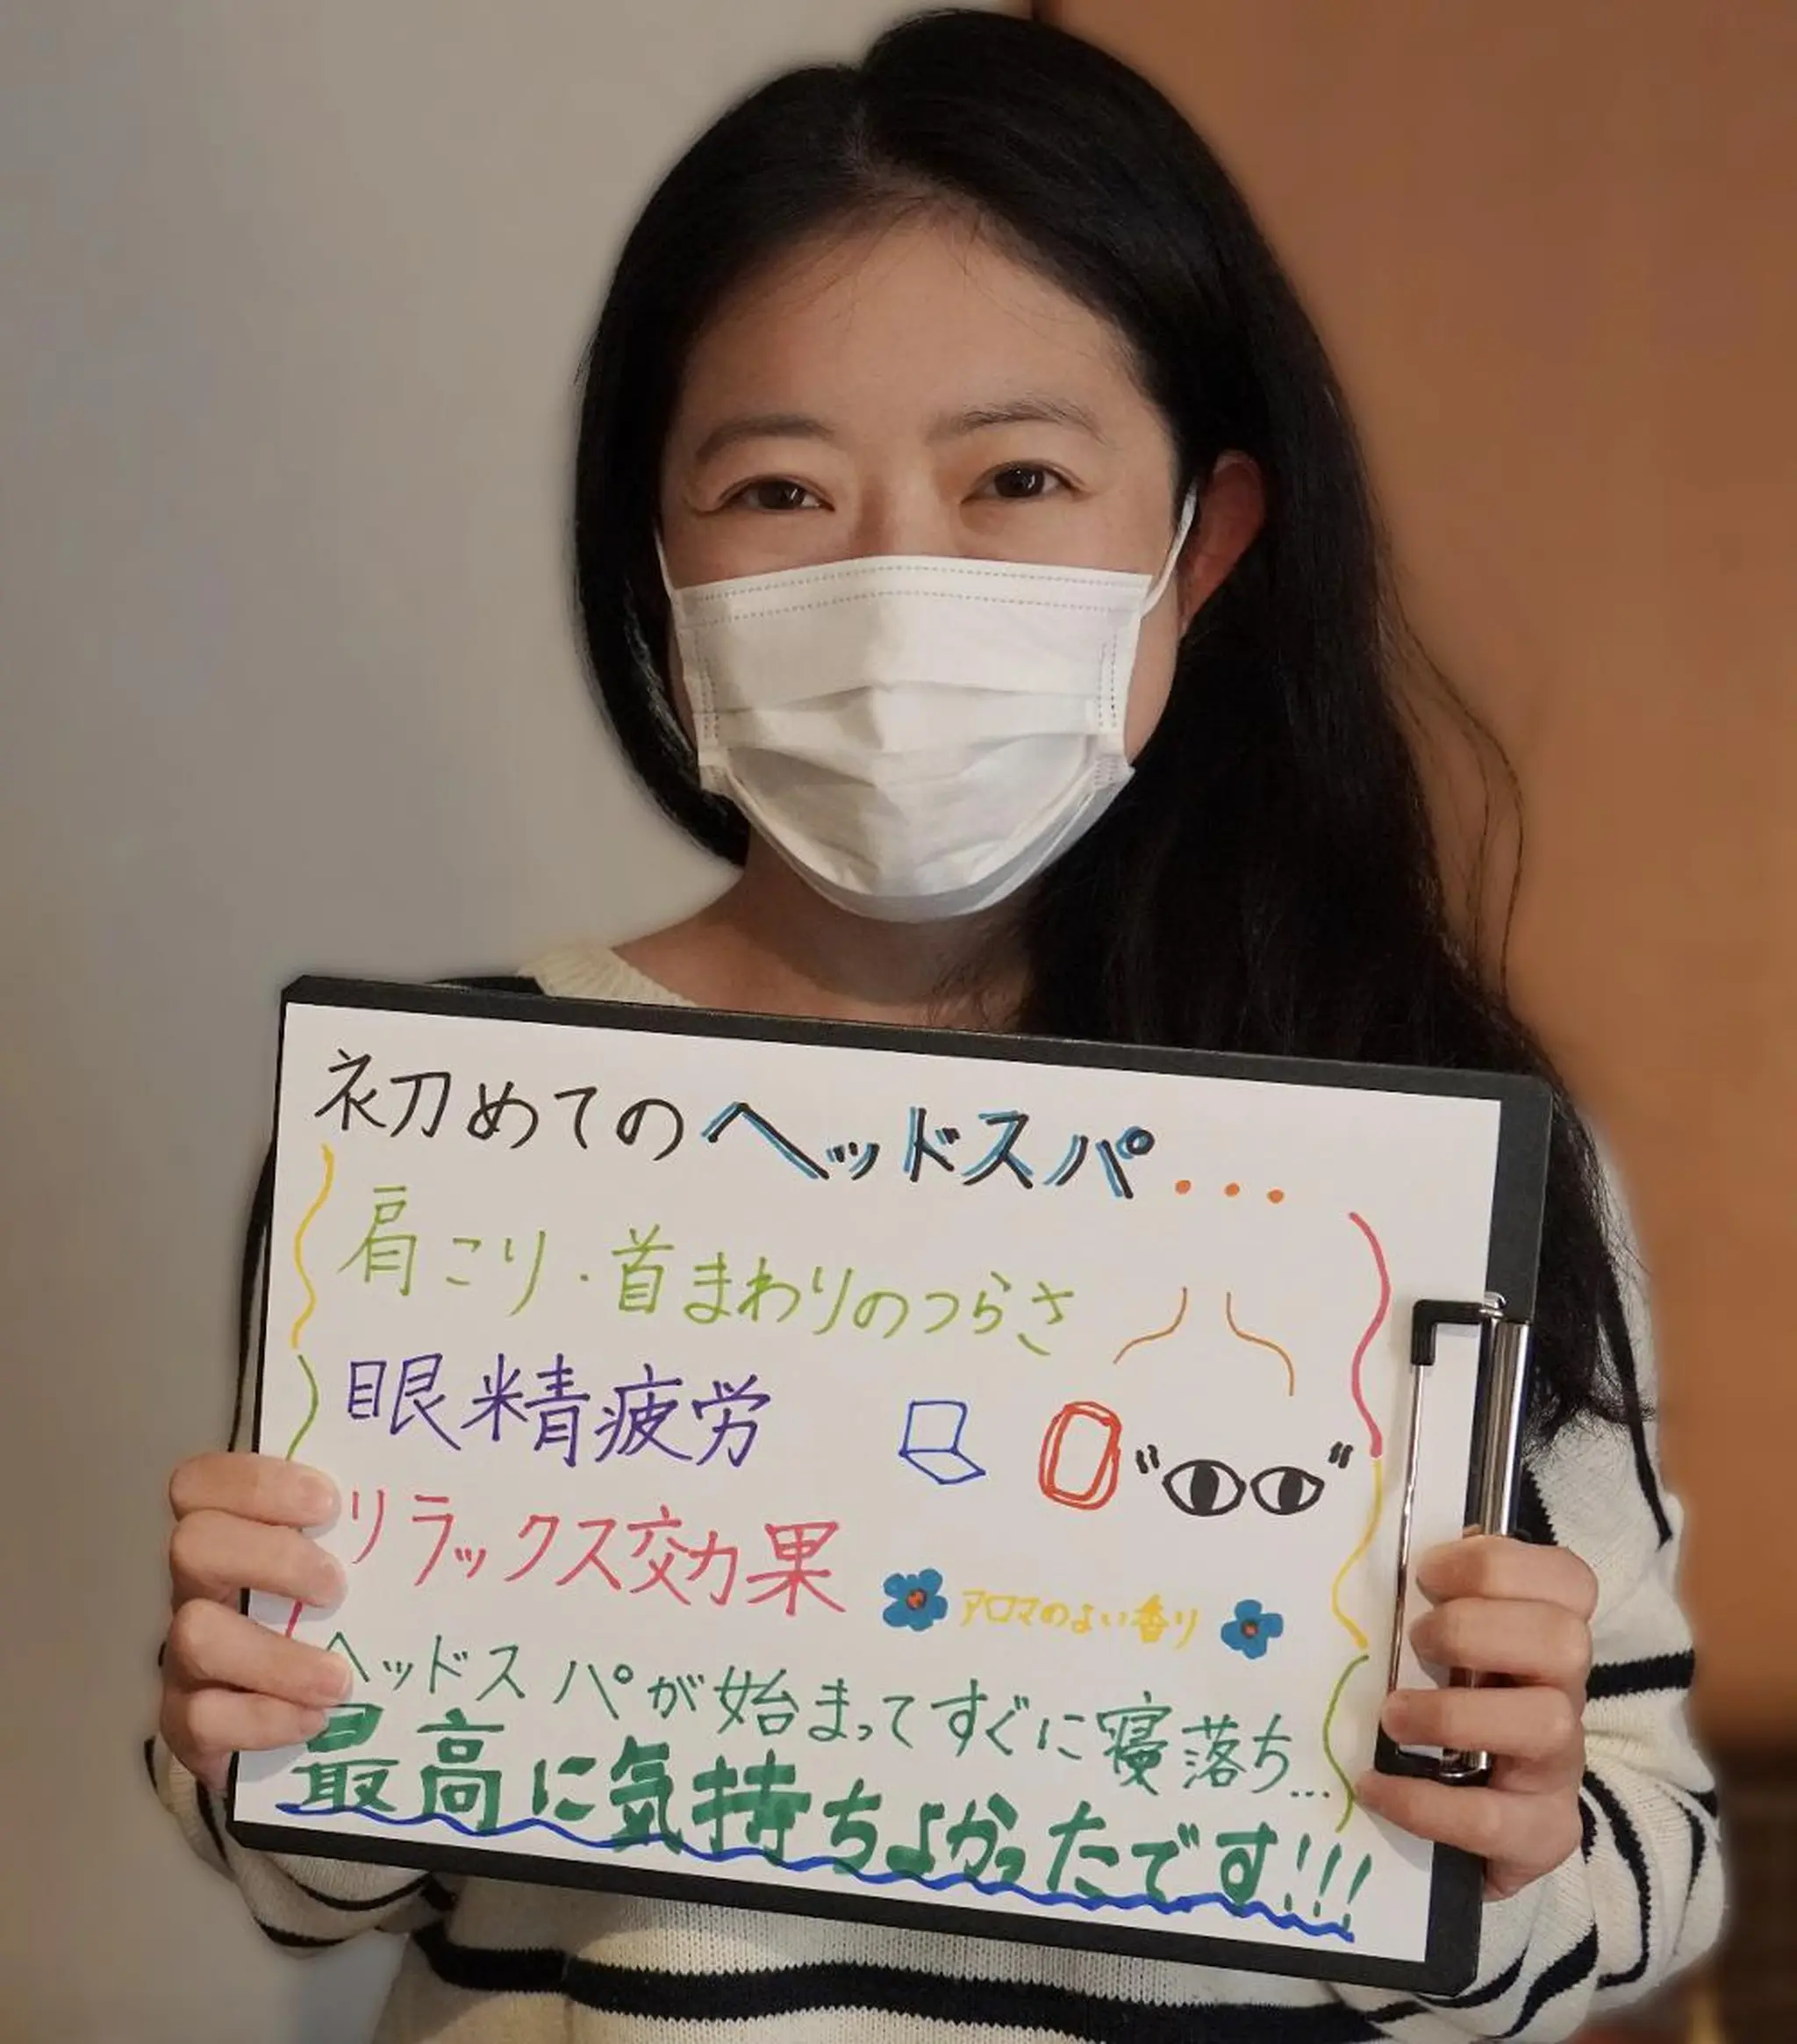 初めてのヘッドスパ...
肩こり・首まわりのつらさ
眼精疲労
リラックス効果 アロマのよい香り
ヘッドスパが始まってすぐに寝落ち...
最高に気持ちよかったです!!!